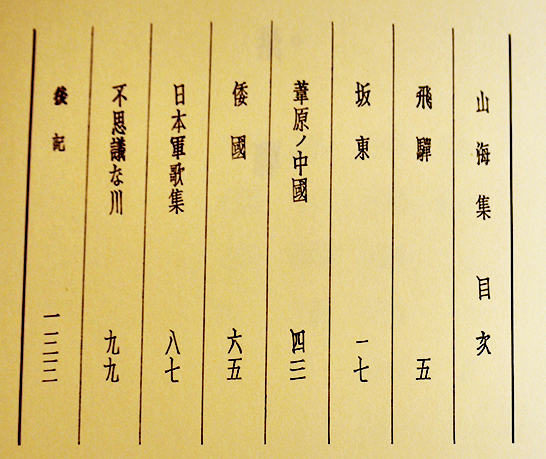 山海集 目次
飛驒 五
坂東 一七
葦原ノ中國 四三
倭國 六五
日本軍歌集 八七
不思議な川 九九
後記 一二三